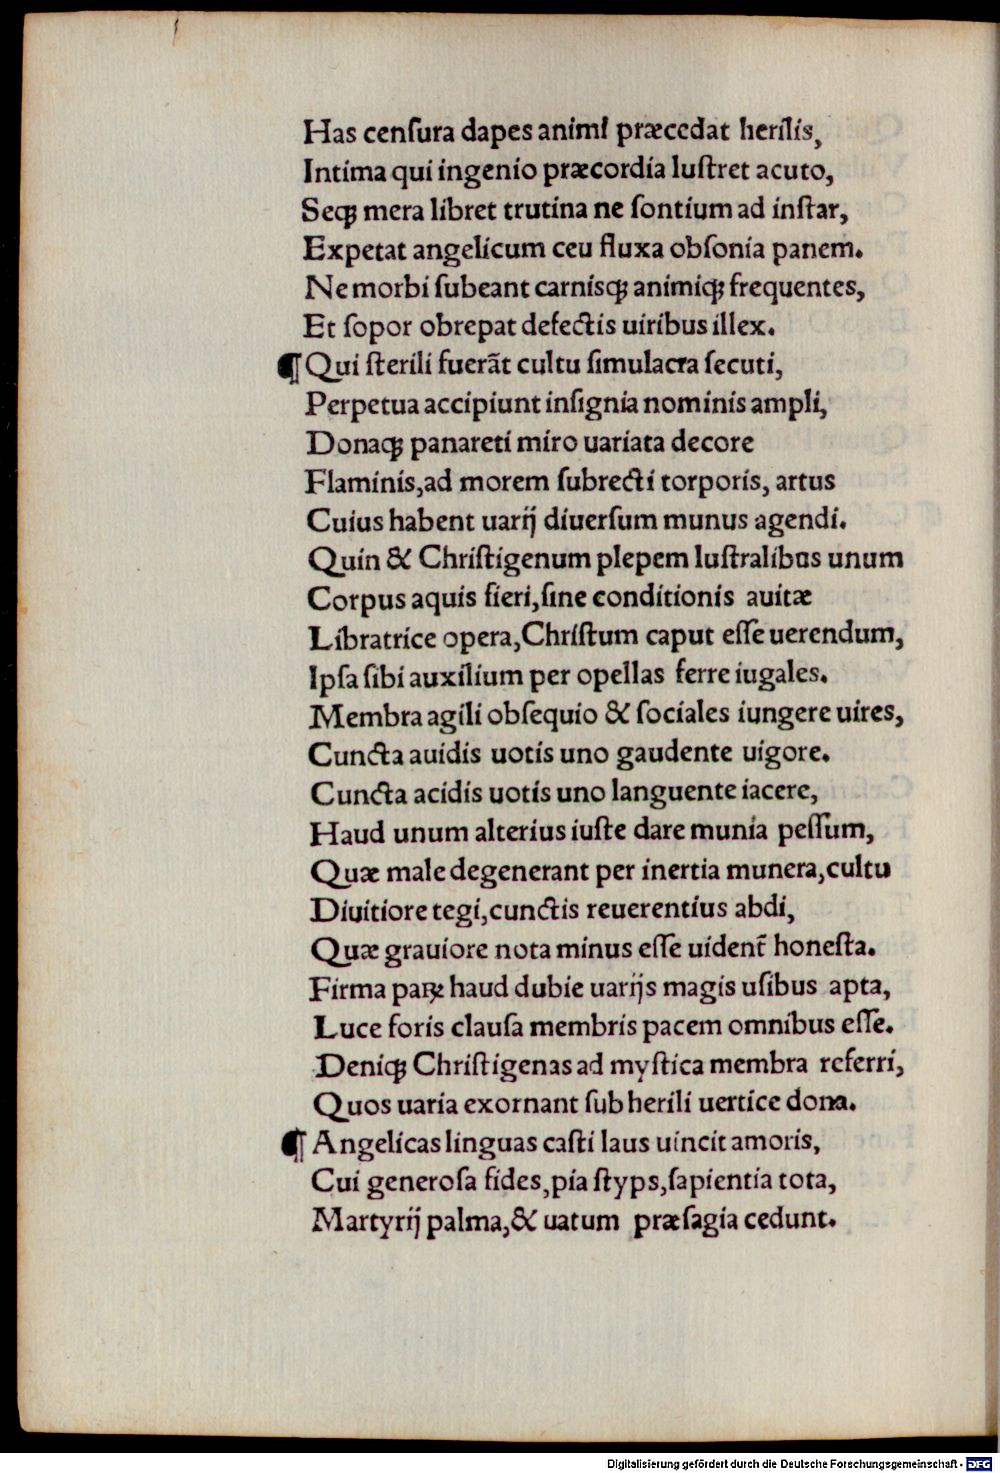 Has cenſura dapes animi præcedat herilis,
Intima qui ingenio præcordia luſtret acuto,
Seqꝫ mera libret trutina ne ſontium ad inſtar,
Expetat angelicum ceu fluxa obſonia panem.
Ne morbi ſubeant carniſqꝫ animiqꝫ frequentes,
Et ſopor obrepat defectis uiribus illex.
¶ Qui ſterili fuerāt cultu ſimulacra ſecuti,
Perpetua accipiunt inſignia nominis ampli,
Donaqꝫ panareti miro uariata decore
Flaminis,ad morem ſubrecti torporis, artus
Cuius habent uarij diuerſum munus agendi.
Quin & Chriſtigenum plepem luſtralibus unum
Corpus aquis fieri,ſine conditionis auitæ
Libratrice opera,Chriſtum caput eſſe uerendum,
Ipſa ſibi auxilium per opellas ferre iugales.
Membra agili obſequio & ſociales iungere uires,
Cuncta auidis uotis uno gaudente uigore.
Cuncta acidis uotis uno languente iacere,
Haud unum alterius iuſte dare munia peſſum,
Quæ male degenerant per inertia munera,cultu
Diuitiore tegi,cunctis reuerentius abdi,
Quæ grauiore nota minus eſſe uident̃ honeſta.
Firma paꝝ haud dubie uarijs magis uſibus apta,
Luce foris clauſa membris pacem omnibus eſſe.
Deniqꝫ Chriſtigenas ad myſtica membra referri,
Quos uaria exornant ſub herili uertice dona.
¶ Angelicas linguas caſti laus uincit amoris,
Cui generoſa fides,pia ſtyps,ſapientia tota,
Martyrij palma,& uatum præſagia cedunt.
Digitalisierung gefördert durch die Deutsche Forschungsgemeinschaft - DFG